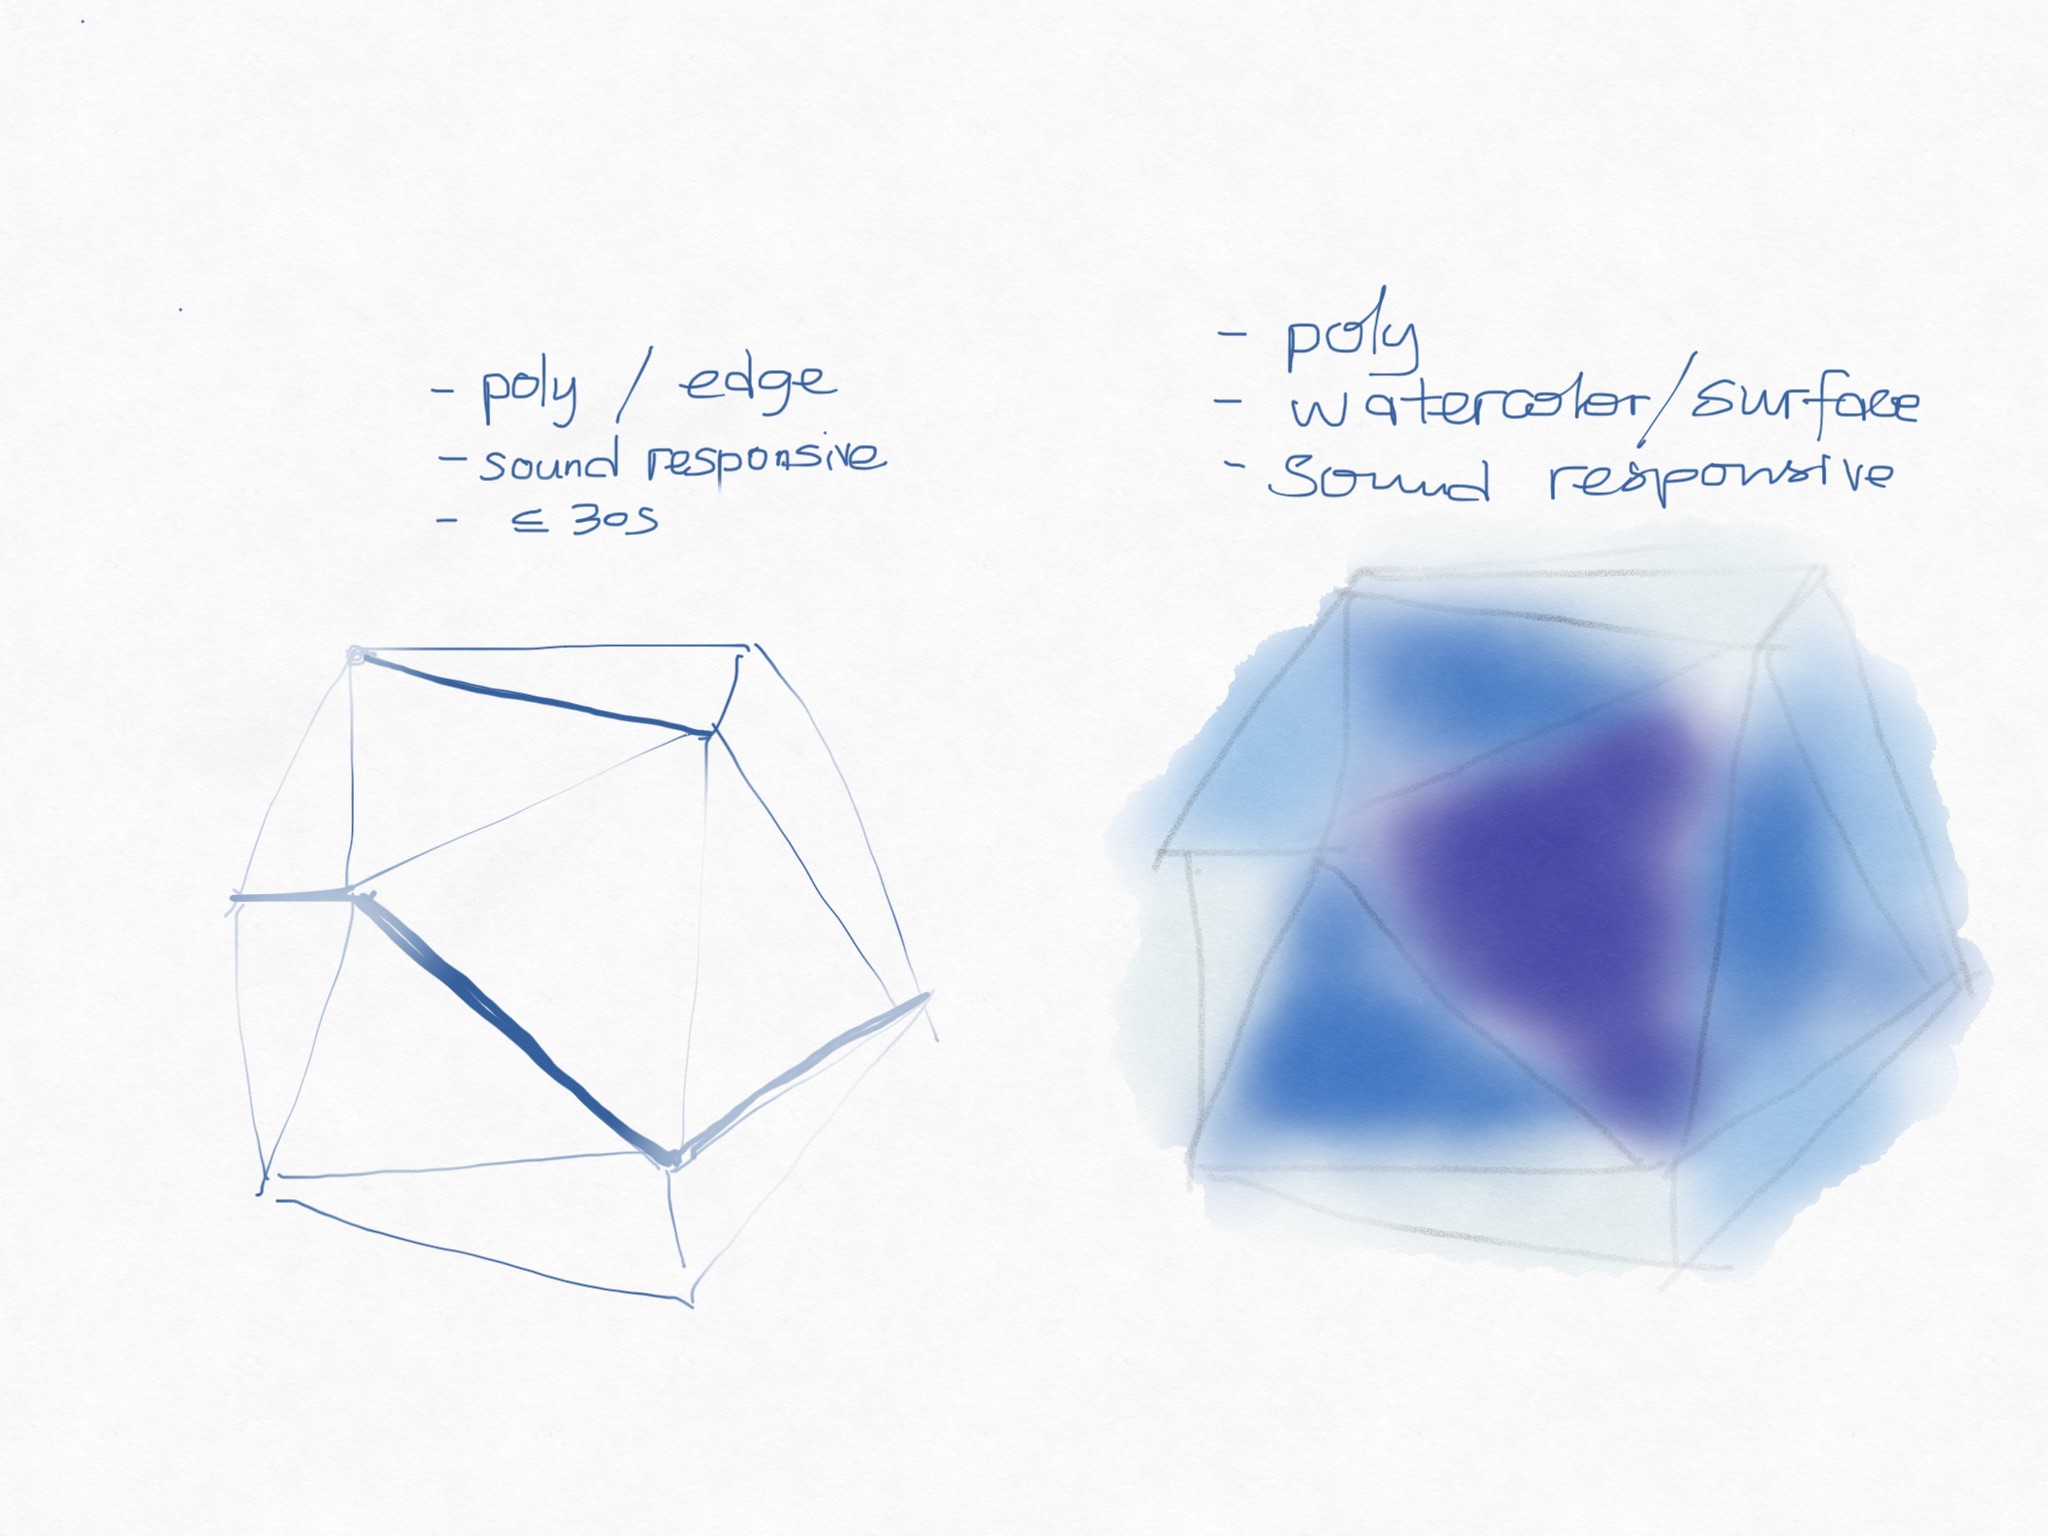 - poly / edge
- sound responsive
- ≤ 30s
- poly
- watercolor/surface
- Sound responsive